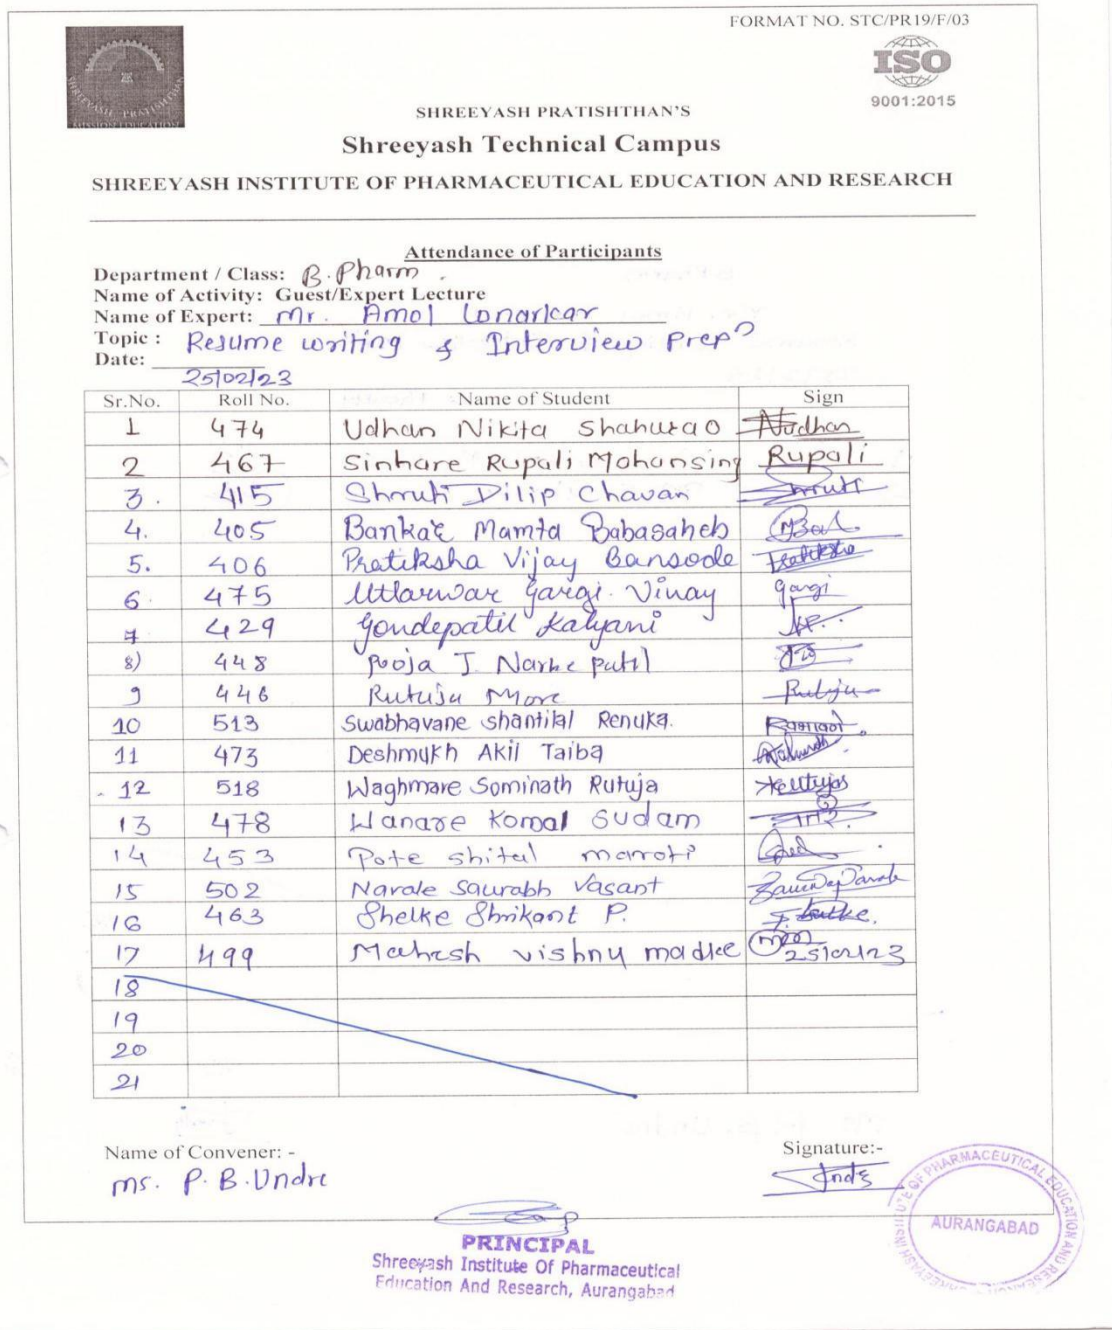 FORMAT NO. STC/PR19/F/03
SHREEYASH PRATISHTHAN
MISSION EDUCATION
ISO
9001:2015
SHREEYASH PRATISHTHAN'S
Shreeyash Technical Campus
SHREEYASH INSTITUTE OF PHARMACEUTICAL EDUCATION AND RESEARCH
Attendance of Participants
Department / Class: B.Pharm.
Name of Activity: Guest/Expert Lecture
Name of Expert: Mr. Amol Lonarkar
Topic : Resume writing & Interview Prepn
Date: 25/02/23
Sr.No. Roll No. Name of Student Sign
1 474 Udhan Nikita Shahurao Nudhan
2 467 Sinhare Rupali Mohansing Rupali
3. 415 Shruti Dilip Chavan Shruti
4. 405 Bankar Mamta Babasaheb
5. 406 Pratiksha Vijay Bansode Pratiksha
6. 475 Uttarwar Gargi Vinay Gargi
7 429 Gondepatil Kalyani
8) 448 Pooja J. Narhe patil
9 446 Rutuja More Rutuja
10 513 Swabhavane Shantilal Renuka.
11 473 Deshmukh Akil Taiba
12 518 Waghmare Sominath Rutuja
13 478 Wanare Komal Sudam
14 453 Pote shital maroti
15 502 Narale Saurabh Vasant
16 463 Shelke Shrikant P.
17 499 Mahesh vishnu 25/02/23
18
19
20
21
Name of Convener: - Signature:-
ms. P.B.Undre
PRINCIPAL
Shreeyash Institute Of Pharmaceutical
Education And Research, Aurangabad
SHREEYASH INSTITUTE OF PHARMACEUTICAL EDUCATION AND RESEARCH
AURANGABAD